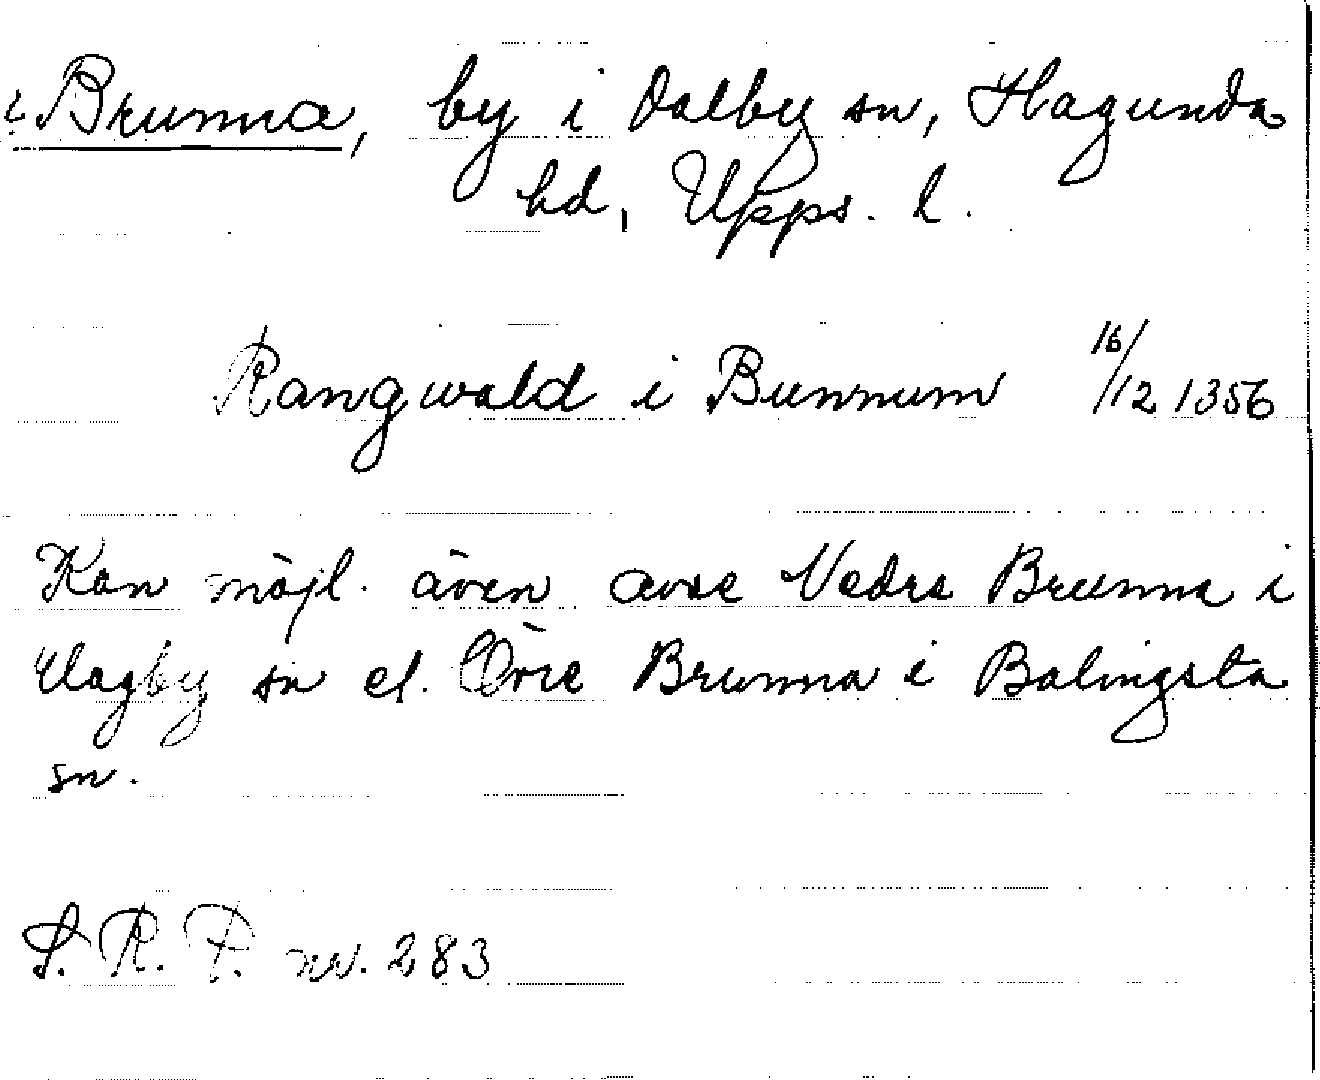 ? Brunna, by i Dalby sn, Hagunda
hd, Upps. l.
Rangwald i Bunnum 16/12 1356
Kan möjl. även avse Vedra Brunna i
Vagby sn el. Övre Brunna i Balingsta
sn.
S. R. P. nr. 283